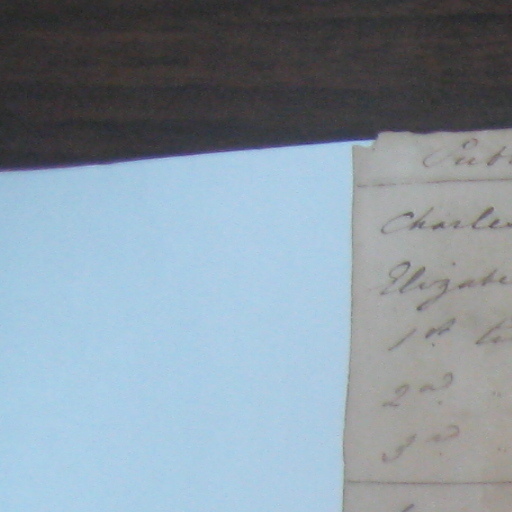 Publ
Charles
Elizabe
1st ti
2nd "
3rd "